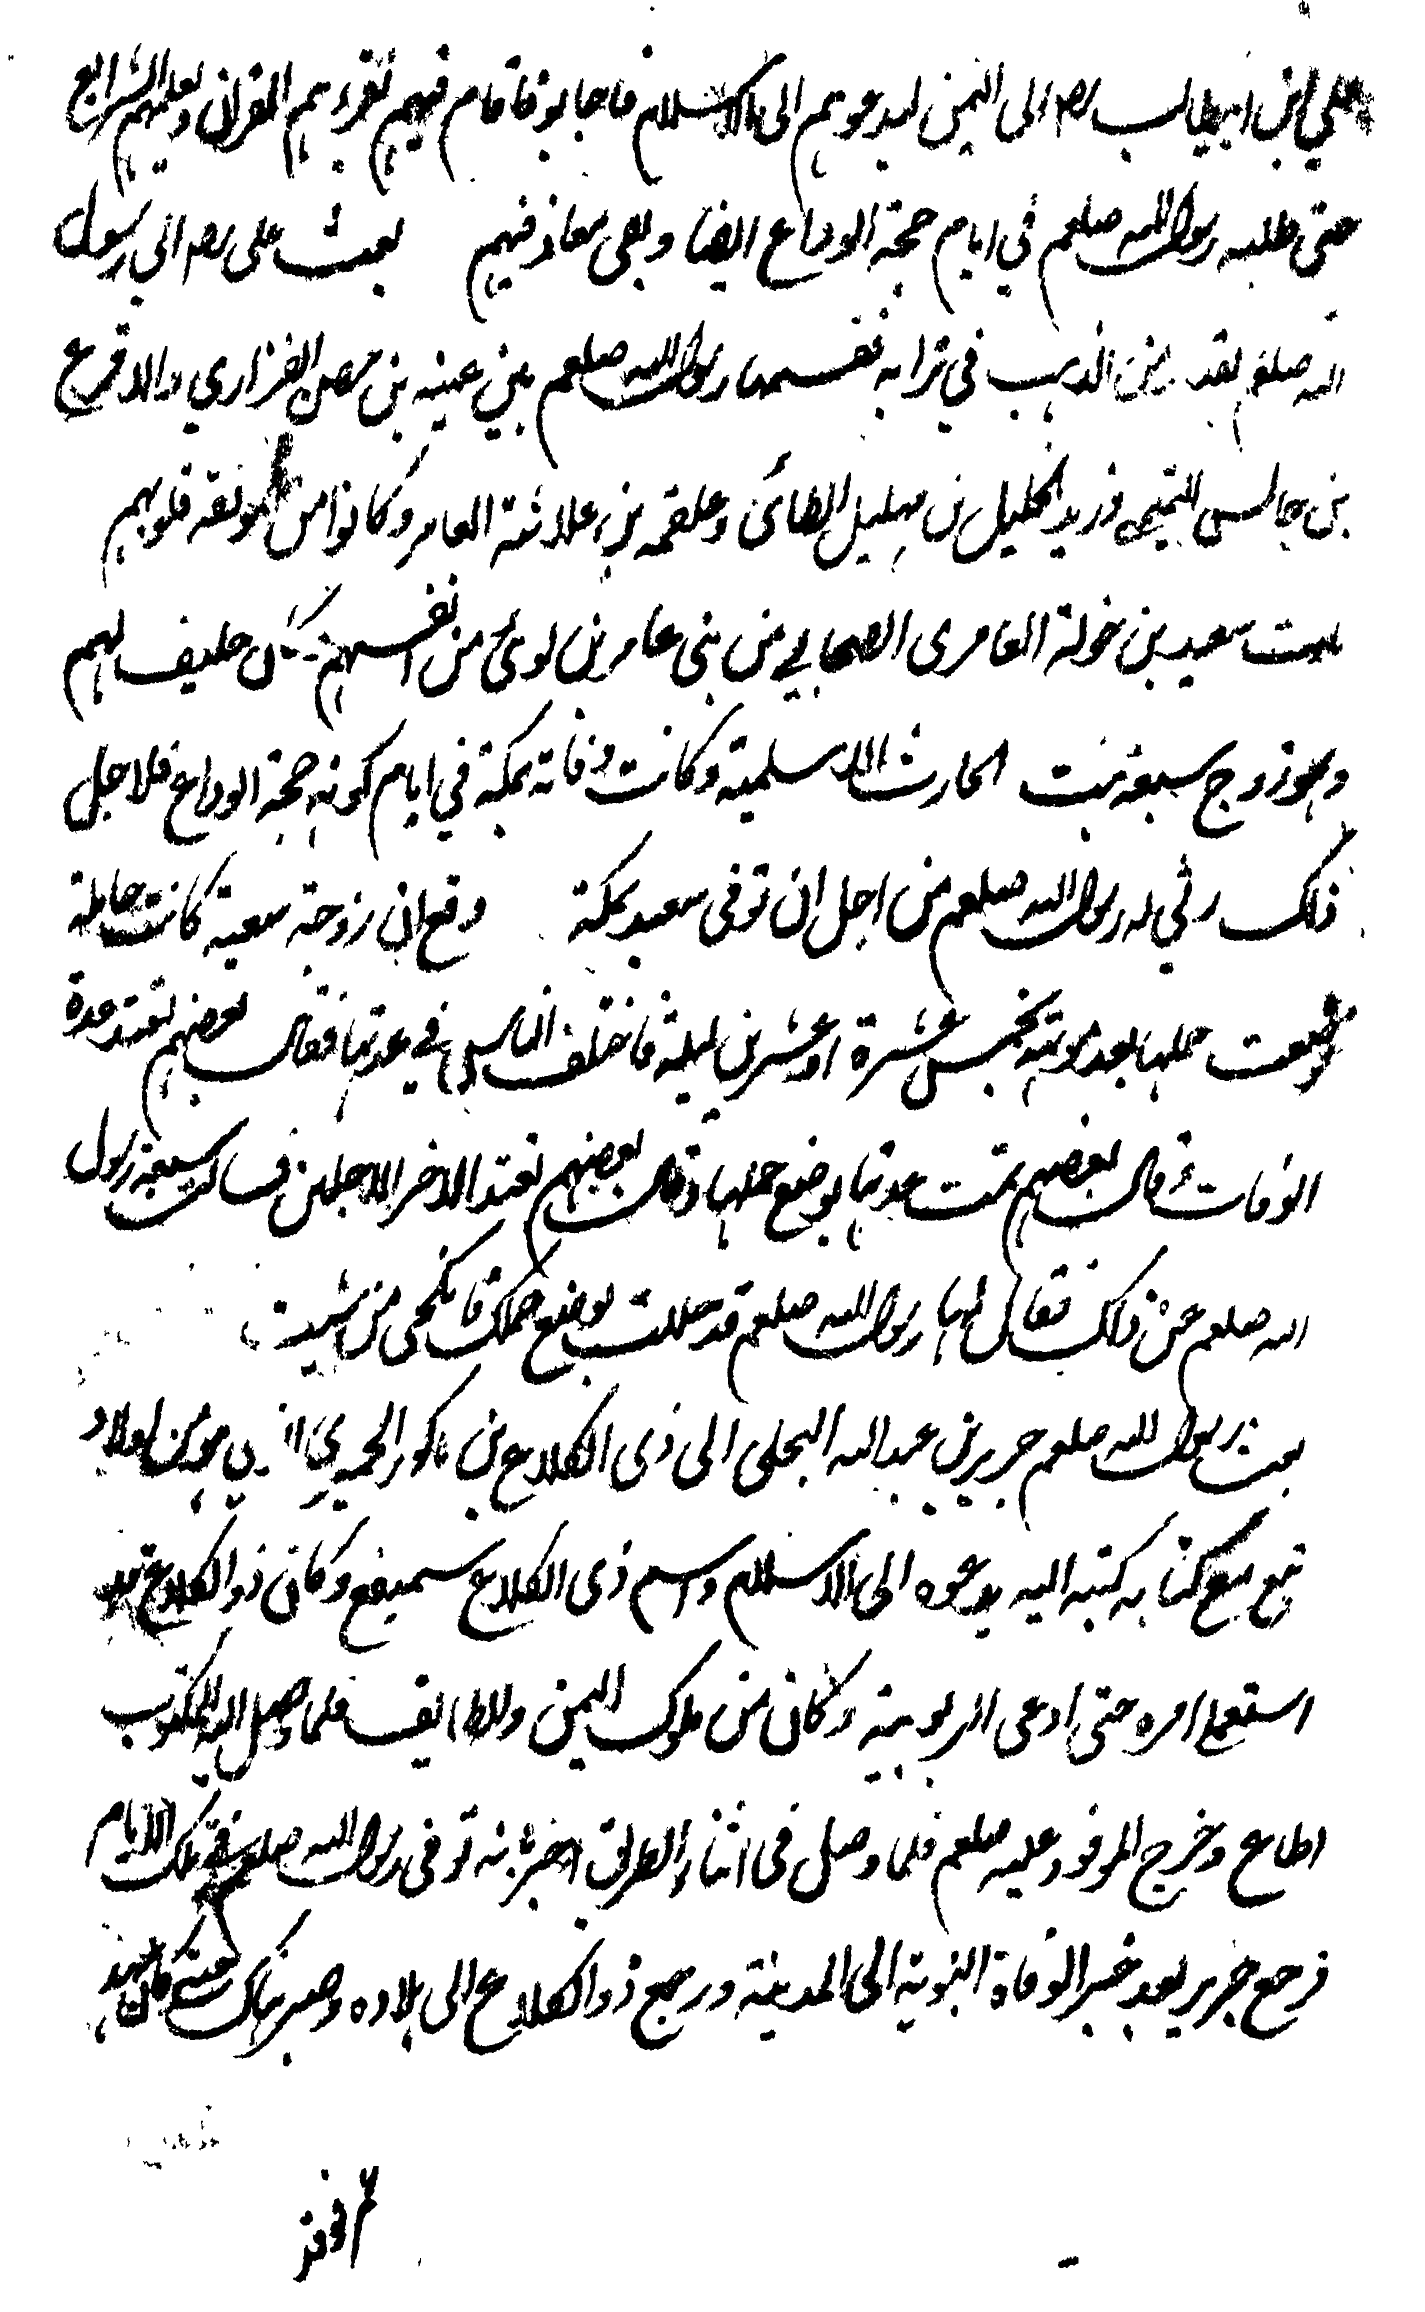 علي ابن ابيطالب رضه الى اليمن ليدعوهم الى الاسلام فاجابو فاقام فيهم يقرءهم القران ويعلمهم الشرايع
حتى طلبه رسول الله صلعم في ايام حجة الوداع ايضا وبقى معاذ فيهم بعث على رضه الي رسول
الله صلعم بقد من الذهب في ترابه فقسمها رسول الله صلعم بين عينه بن حصن الفزاري والاقرع
بن حالس التميمي وزيد الخليل بن مهليل الطائى وعلقمه بن علاثة العامر وكانوا من المولفه قلوبهم
سعيد بن خولة العامرى الصحابي من بنى عامر بن لوئ من نفسهم حليف لهم
وهو زوج سبعة بنت الحارث الاسلمية وكانت وفاته بمكة في ايام كونه حجة الوداع فلاجل
ذلك رثي له رسول الله صلعم من اجل ان توفى سعيد بمكة وقع ان زوجة سعية كانت حاملة
وضعت حملها بعد موته بخمس عشرة او عشرين ليلة فاختلف الناس في عدتها فقال بعضهم تعتد عدة
الوفات وقال بعضهم تمت عدتها بوضع حملها وقال بعضهم تعتد الاخر الاجلين فسالت سبعة رسول
الله صلعم عن ذلك فقال لها رسول الله صلعم قد حللت بوضع حملك فانكحى من شيت
بعث رسول الله صلعم جرير بن عبد الله البجلى الى ذى الكلاع بن باكور الحميري من اولاد
تبع مع كتابه كتبه اليه يدعوه الى الاسلام واسم ذى الكلاع سميفع وكان ذو الكلاع قد
استعلا امره حتى ادعى الربوبية وكان من ملوك اليمن والطايف فلما وصل اليه المكتوب
اطاع وخرج للوفود عليه صلعم فلما وصل فى اثناء الطريق اخبر بانه توفى رسول الله صلعم في تلك الايام
فرجع جرير بعد خبر الوفاة النبوية الى المدينة ورجع ذو الكلاع الى بلاده وصبر هناك